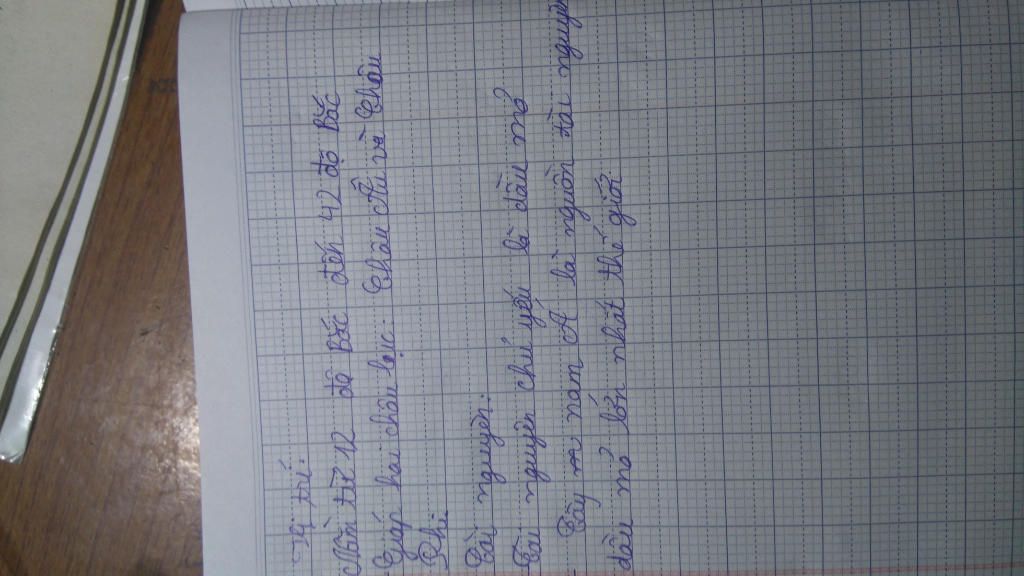 Vị trí:
Nằm từ 12 độ Bắc đến 42 độ Bắc
Giáp hai châu lục: Châu Âu và Châu
Phi.
Tài nguyên:
Tài nguyên chủ yếu là dầu mỏ
Tây m nam Á là nguồn tài nguyên
dầu mỏ lớn nhất thế giới